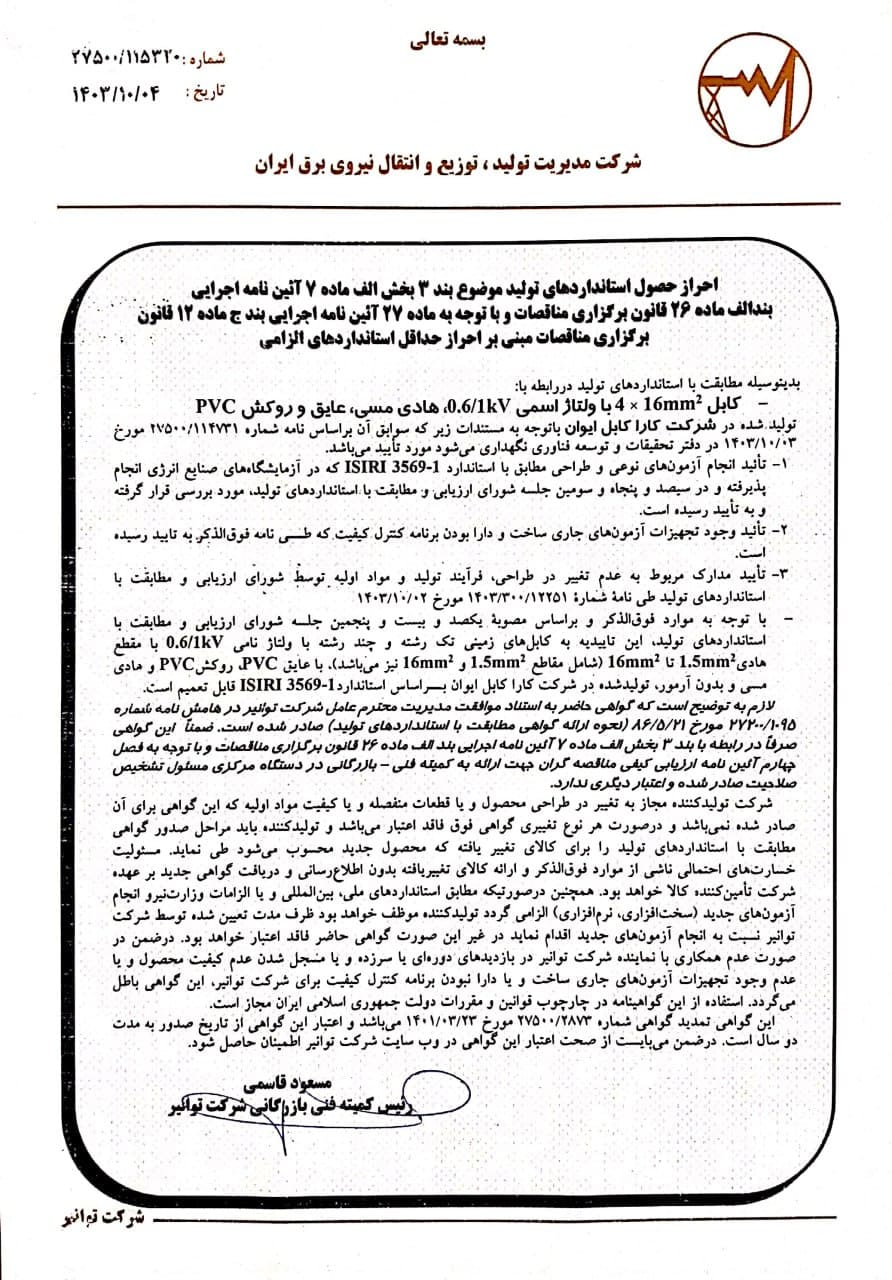 بسمه تعالی
شماره : ۲۷۵۰۰/۱۱۵۳۲۰
تاریخ : ۱۴۰۳/۱۰/۰۴
شرکت مدیریت تولید ، توزیع و انتقال نیروی برق ایران
احراز حصول استانداردهای تولید موضوع بند ۳ بخش الف ماده ۷ آئین نامه اجرایی
بندالف ماده ۲۶ قانون برگزاری مناقصات و با توجه به ماده ۲۷ آئین نامه اجرایی بند ج ماده ۱۲ قانون
برگزاری مناقصات مبنی بر احراز حداقل استانداردهای الزامی
بدینوسیله مطابقت با استانداردهای تولید دررابطه با:
– کابل 4 × 16mm² با ولتاژ اسمی 0.6/1kV، هادی مسی، عایق و روکش PVC
تولید شده در شرکت کارا کابل ایوان باتوجه به مستندات زیر که سوابق آن براساس نامه شماره ۲۷۵۰۰/۱۱۴۷۳۱ مورخ
۱۴۰۳/۱۰/۰۳ در دفتر تحقیقات و توسعه فناوری نگهداری می‌شود مورد تأیید می‌باشد.
۱- تأئید انجام آزمون‌های نوعی و طراحی مطابق با استاندارد ISIRI 3569-1 که در آزمایشگاه‌های صنایع انرژی انجام
پذیرفته و در سیصد و پنجاه و سومین جلسه شورای ارزیابی و مطابقت با استانداردهای تولید، مورد بررسی قرار گرفته
و به تأیید رسیده است.
۲- تأئید وجود تجهیزات آزمون‌های جاری ساخت و دارا بودن برنامه کنترل کیفیت که طی نامه فوق‌الذکر به تایید رسیده
است.
۳- تأیید مدارک مربوط به عدم تغییر در طراحی، فرآیند تولید و مواد اولیه توسط شورای ارزیابی و مطابقت با
استانداردهای تولید طی نامهٔ شمارهٔ ۱۴۰۳/۳۰۰/۱۲۲۵۱ مورخ ۱۴۰۳/۱۰/۰۲
– با توجه به موارد فوق‌الذکر و براساس مصوبهٔ یکصد و بیست و پنجمین جلسه شورای ارزیابی و مطابقت با
استانداردهای تولید، این تاییدیه به کابل‌های زمینی تک رشته و چند رشته با ولتاژ نامی 0.6/1kV با مقطع
هادی1.5mm² تا 16mm² (شامل مقاطع 1.5mm² و 16mm² نیز می‌باشد)، با عایق PVC، روکشPVC و هادی
مسی و بدون آرمور، تولیدشده در شرکت کارا کابل ایوان براساس استانداردISIRI 3569-1 قابل تعمیم است.
لازم به توضیح است که گواهی حاضر به استناد موافقت مدیریت محترم عامل شرکت توانیر در هامش نامه شماره
۲۷۲۰۰/۱۰۹۵ مورخ ۸۶/۵/۲۱ (نحوه ارائه گواهی مطابقت با استانداردهای تولید) صادر شده است. ضمناً این گواهی
صرفاً در رابطه با بند ۳ بخش الف ماده ۷ آئین نامه اجرایی بند الف ماده ۲۶ قانون برگزاری مناقصات و با توجه به فصل
چهارم آئین نامه ارزیابی کیفی مناقصه گران جهت ارائه به کمیته فنی – بازرگانی در دستگاه مرکزی مسئول تشخیص
صلاحیت صادر شده و اعتبار دیگری ندارد.
شرکت تولیدکننده مجاز به تغییر در طراحی محصول و یا قطعات منفصله و یا کیفیت مواد اولیه که این گواهی برای آن
صادر شده نمی‌باشد و درصورت هر نوع تغییری گواهی فوق فاقد اعتبار می‌باشد و تولیدکننده باید مراحل صدور گواهی
مطابقت با استانداردهای تولید را برای کالای تغییر یافته که محصول جدید محسوب می‌شود طی نماید. مسئولیت
خسارت‌های احتمالی ناشی از موارد فوق‌الذکر و ارائه کالای تغییریافته بدون اطلاع‌رسانی و دریافت گواهی جدید بر عهده
شرکت تأمین‌کننده کالا خواهد بود. همچنین درصورتیکه مطابق استانداردهای ملی، بین‌المللی و یا الزامات وزارت‌نیرو انجام
آزمون‌های جدید (سخت‌افزاری، نرم‌افزاری) الزامی گردد تولیدکننده موظف خواهد بود ظرف مدت تعیین شده توسط شرکت
توانیر نسبت به انجام آزمون‌های جدید اقدام نماید در غیر این صورت گواهی حاضر فاقد اعتبار خواهد بود. درضمن در
صورت عدم همکاری با نماینده شرکت توانیر در بازدیدهای دوره‌ای یا سرزده و یا مسجل شدن عدم کیفیت محصول و یا
عدم وجود تجهیزات آزمون‌های جاری ساخت و یا دارا نبودن برنامه کنترل کیفیت برای شرکت توانیر، این گواهی باطل
می‌گردد. استفاده از این گواهینامه در چارچوب قوانین و مقررات دولت جمهوری اسلامی ایران مجاز است.
این گواهی تمدید گواهی شماره ۲۷۵۰۰/۲۸۷۳ مورخ ۱۴۰۱/۰۳/۲۳ می‌باشد و اعتبار این گواهی از تاریخ صدور به مدت
دو سال است. درضمن می‌بایست از صحت اعتبار این گواهی در وب سایت شرکت توانیر اطمینان حاصل شود.
مسعود قاسمی
رئیس کمیته فنی بازرگانی شرکت توانیر
شرکت توانیر